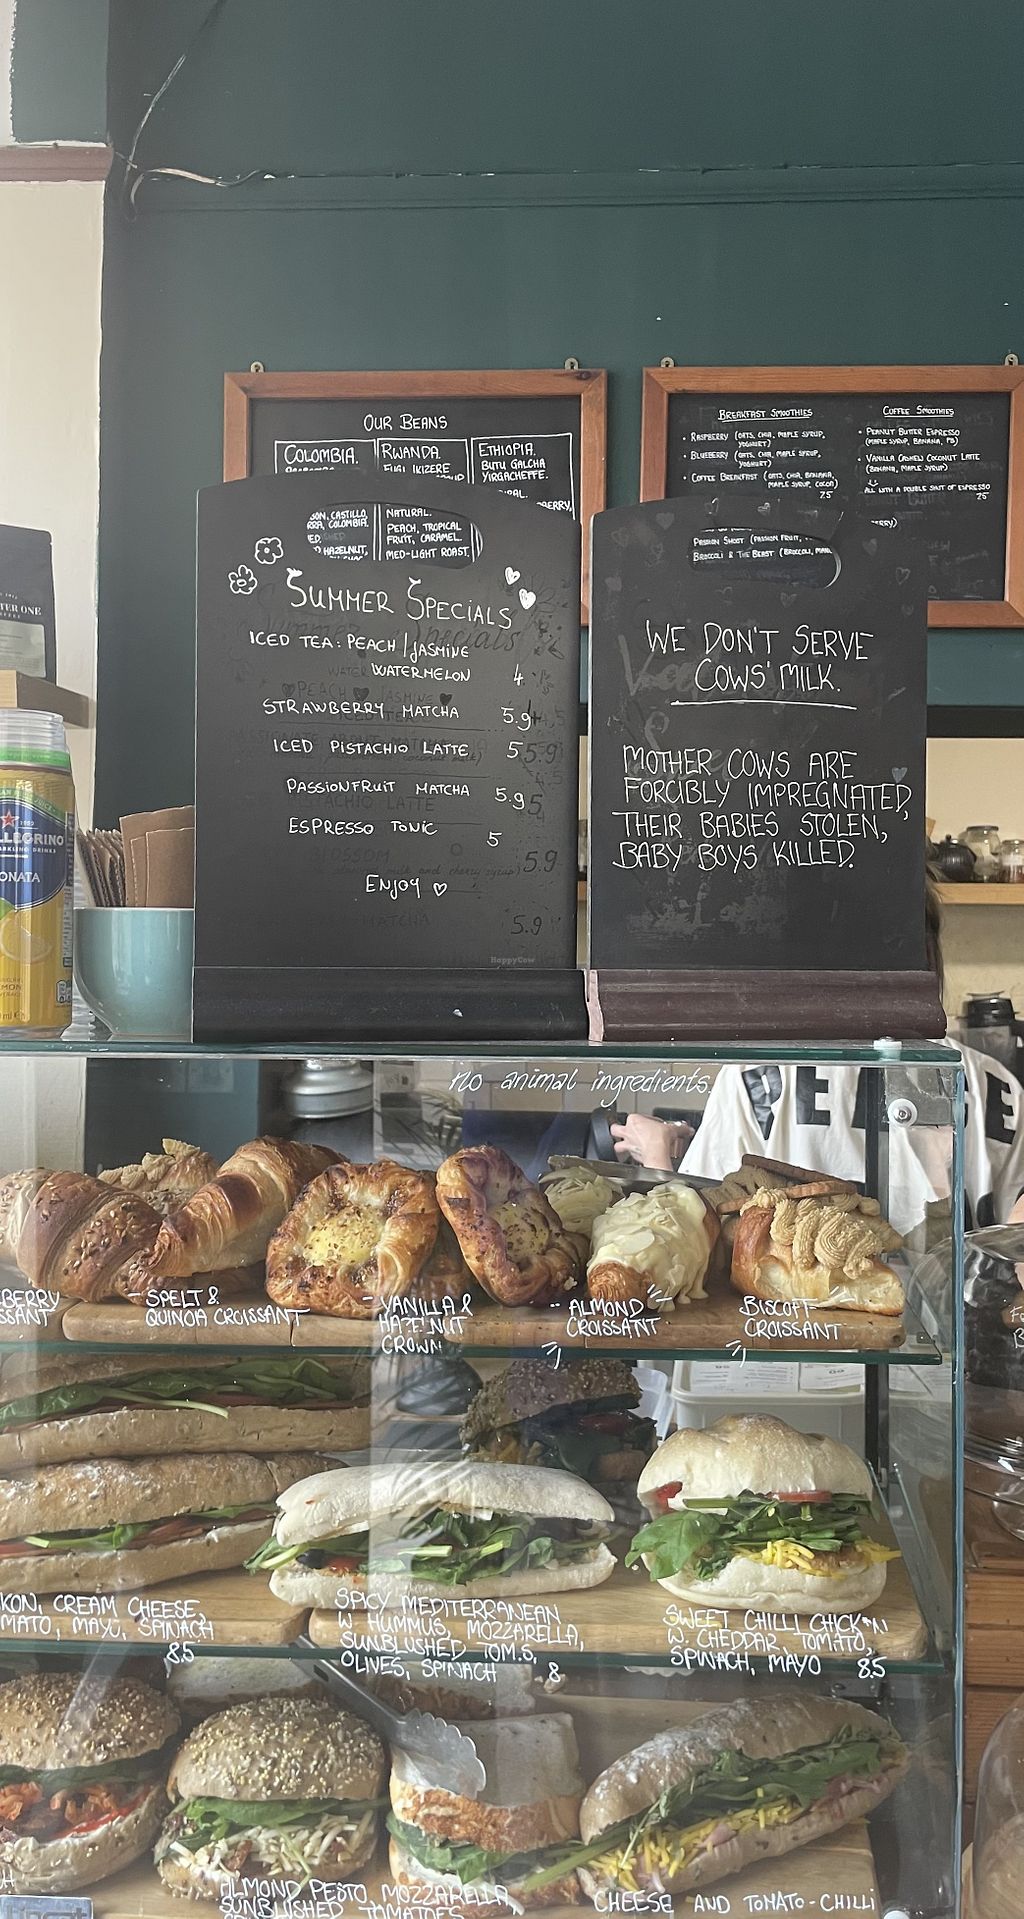 OUR BEANS
COLOMBIA.
RWANDA.
ETHIOPIA.
BUTU GALCHA
YIRGACHEFFE.
NATURAL.
PEACH, TROPICAL
FRUIT, CARAMEL.
MED-LIGHT ROAST.
HAZELNUT,
BREAKFAST SMOOTHIES
• RASPBERRY (OATS, CHIA, MAPLE SYRUP,
YOGHURT)
• BLUEBERRY (OATS, CHIA, MAPLE SYRUP,
YOGHURT)
• COFFEE BREAKFAST (OATS, CHIA, BANANA,
MAPLE SYRUP, COCOA)
7.5
COFFEE SMOOTHIES
• PEANUT BUTTER ESPRESSO
(MAPLE SYRUP, BANANA, PB)
• VANILLA CASHEW COCONUT LATTE
(BANANA, MAPLE SYRUP)
ALL WITH A DOUBLE SHOT OF ESPRESSO
PASSION SHOOT (PASSION FRUIT,
BROCCOLI & THE BEAST (BROCCOLI,
SUMMER SPECIALS
ICED TEA: PEACH / JASMINE
WATERMELON 4
STRAWBERRY MATCHA 5.9
ICED PISTACHIO LATTE 5
PASSIONFRUIT MATCHA 5.9
ESPRESSO TONIC 5
ENJOY
HappyCow
WE DON'T SERVE
COWS' MILK.
MOTHER COWS ARE
FORCIBLY IMPREGNATED,
THEIR BABIES STOLEN,
BABY BOYS KILLED.
no animal ingredients.
SPELT &
QUINOA CROISSANT
VANILLA &
HAZELNUT
CROWN
ALMOND
CROISSANT
BISCOFF
CROISSANT
KON, CREAM CHEESE,
MATO, MAYO, SPINACH
8.5
SPICY MEDITERRANEAN
W. HUMMUS, MOZZARELLA,
SUNBLUSHED TOMS,
OLIVES, SPINACH 8
SWEET CHILLI CHICK*N
W. CHEDDAR, TOMATO,
SPINACH, MAYO 8.5
ALMOND PESTO, MOZZARELLA,
SUNBLUSHED TOMATOES
CHEESE AND TOMATO-CHILLI